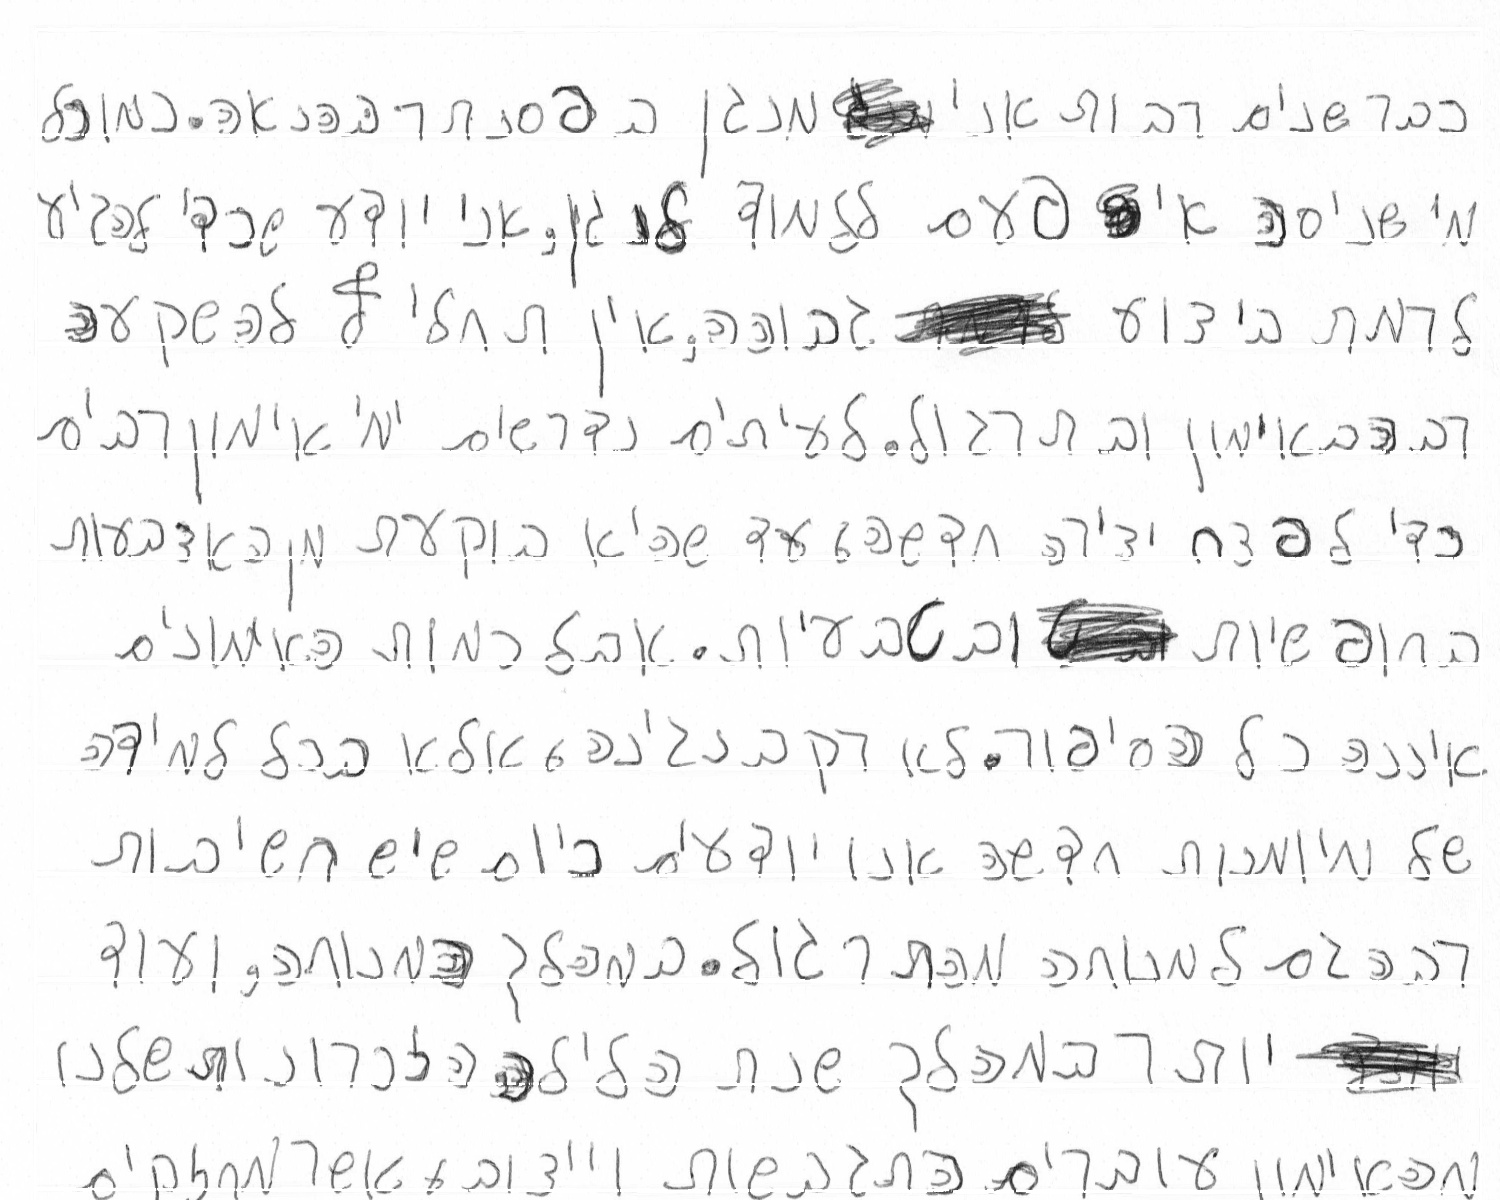 כבר שנים רבות אני מנגן בפסנתר בהנאה. כמו כל
מי שניסה אי פעם ללמוד לנגן, אני יודע שכדי להגיע
לרמת ביצוע גבוהה, אין תחליף להשקעה
רבה באימון ובתרגול. לעיתים נדרשים ימי אימון רבים
כדי לפצח יצירה חדשה, עד שהיא בוקעת מן האצבעות
בחופשיות ובטבעיות. אבל כמות האימונים
איננה כל הסיפור. לא רק בנגינה, אולא בכל למידה
של מיומנות חדשה אנו יודעים כיום שיש חשיבות
רבה גם למנוחה מהתרגול. במהלך המנוחה, ועוד
יותר במהלך שנת הלילה הזכרונות שלנו
מהאימון עוברים התגבשות וייצוב, אשר מחזקים